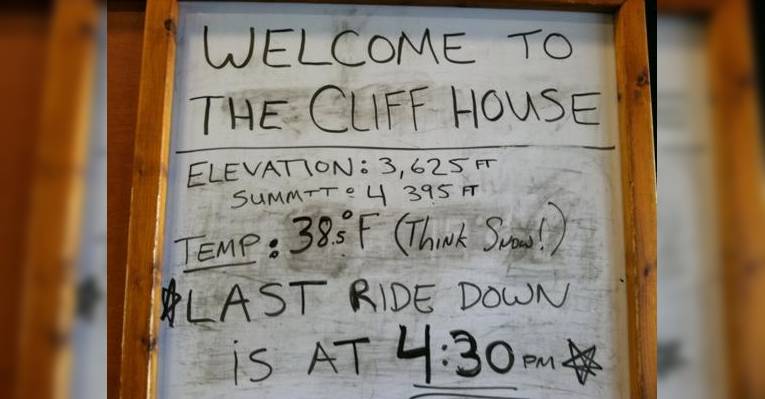 WELCOME TO
THE CLIFF HOUSE
ELEVATION: 3,625 FT
SUMMIT: 4 395 FT
TEMP: 38.5°F (THINK SNOW!)
☆LAST RIDE DOWN
iS AT 4:30 PM ☆